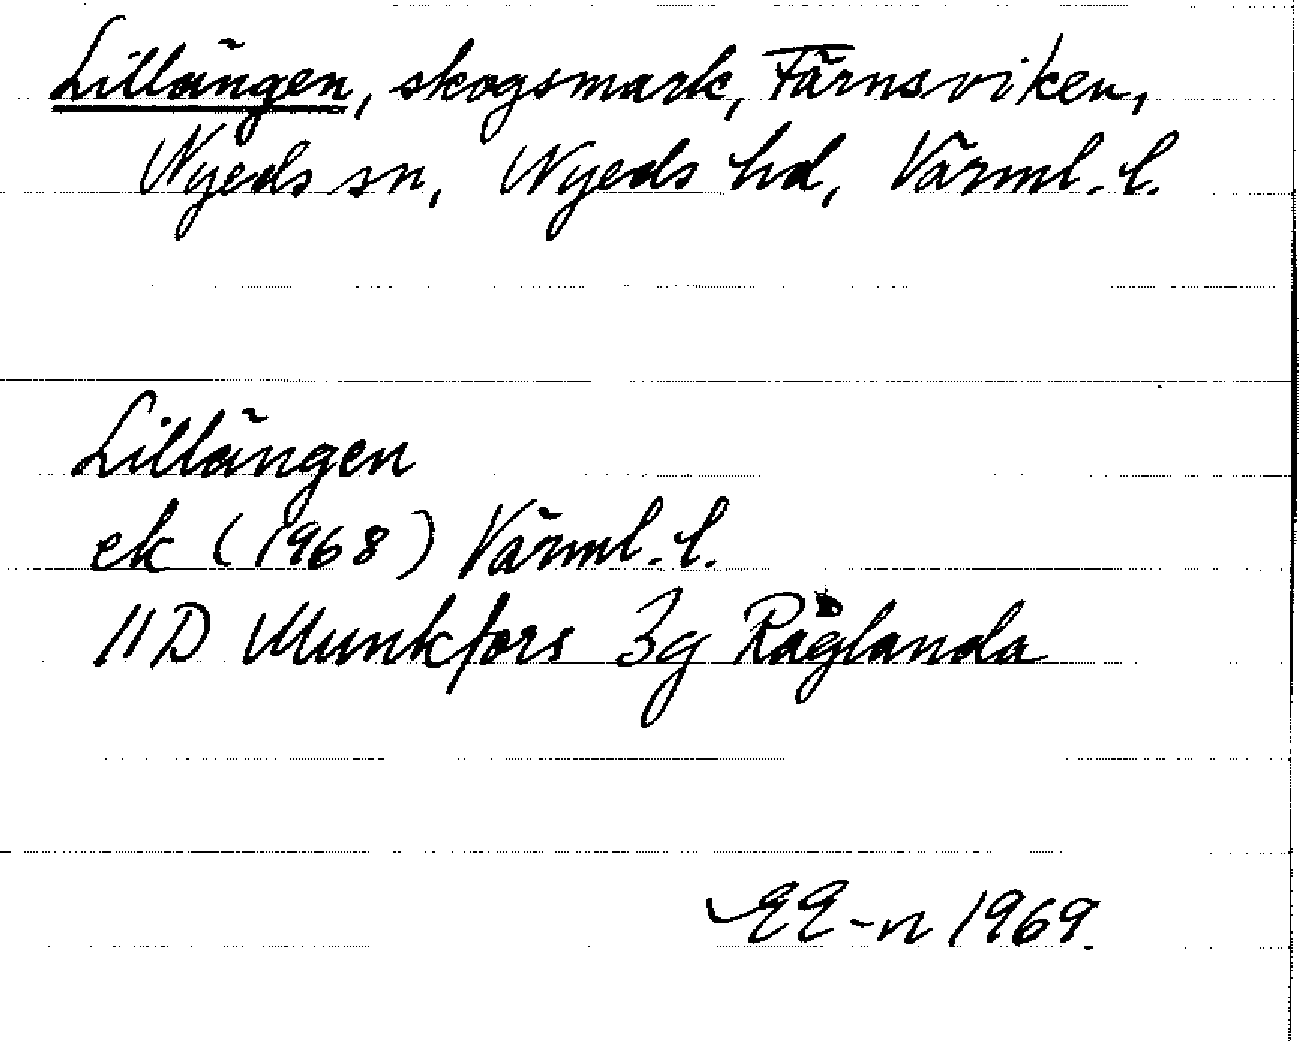 Lillängen, skogsmark, Färnsviken,
Nyeds sn, Nyeds hd, Värml. l.
Lillängen
ek (1968) Värml. l.
11D Munkfors 3g Råglanda
EE-n 1969.